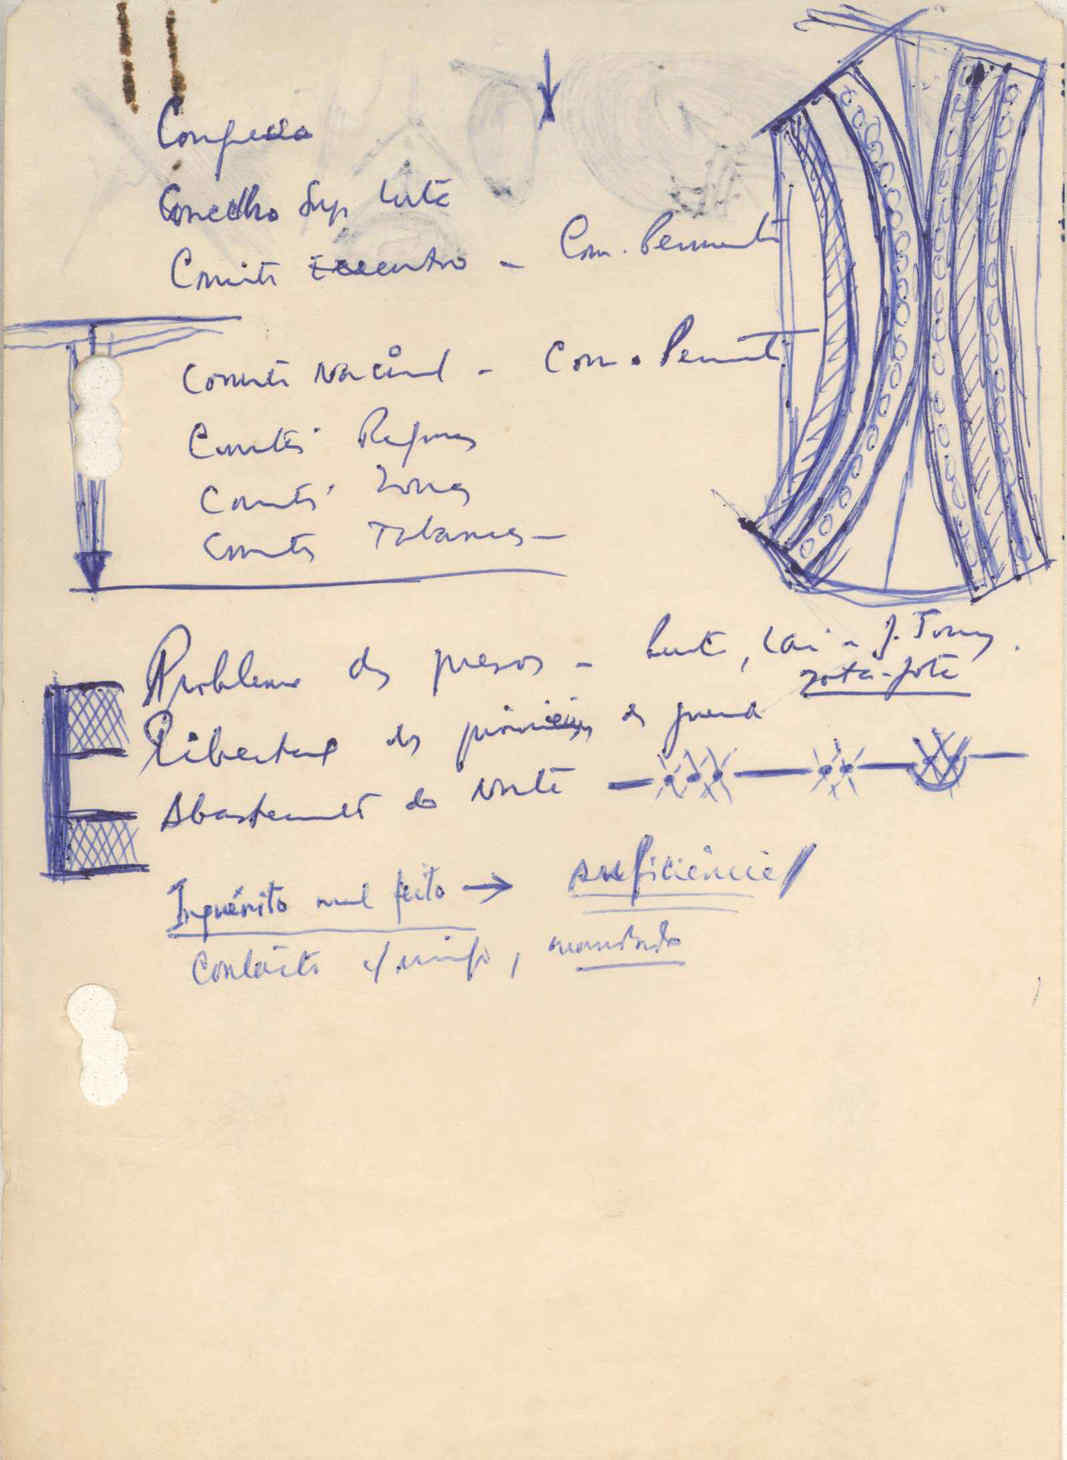 Congresso
Concelho Sup Luta
Comité Executivo - Com. Permanente
Comité Nacional - Com. Permanent
Comités Regiones
Comités Zonas
Comités Tabancas -
Problema dos presos - Luta, - J. Tomy
zota-jote
Libertad dos prisioneiros de guerra
Abastecimento do norte
Inquérito mal feito → suficiência
Contacto c/ , mandado